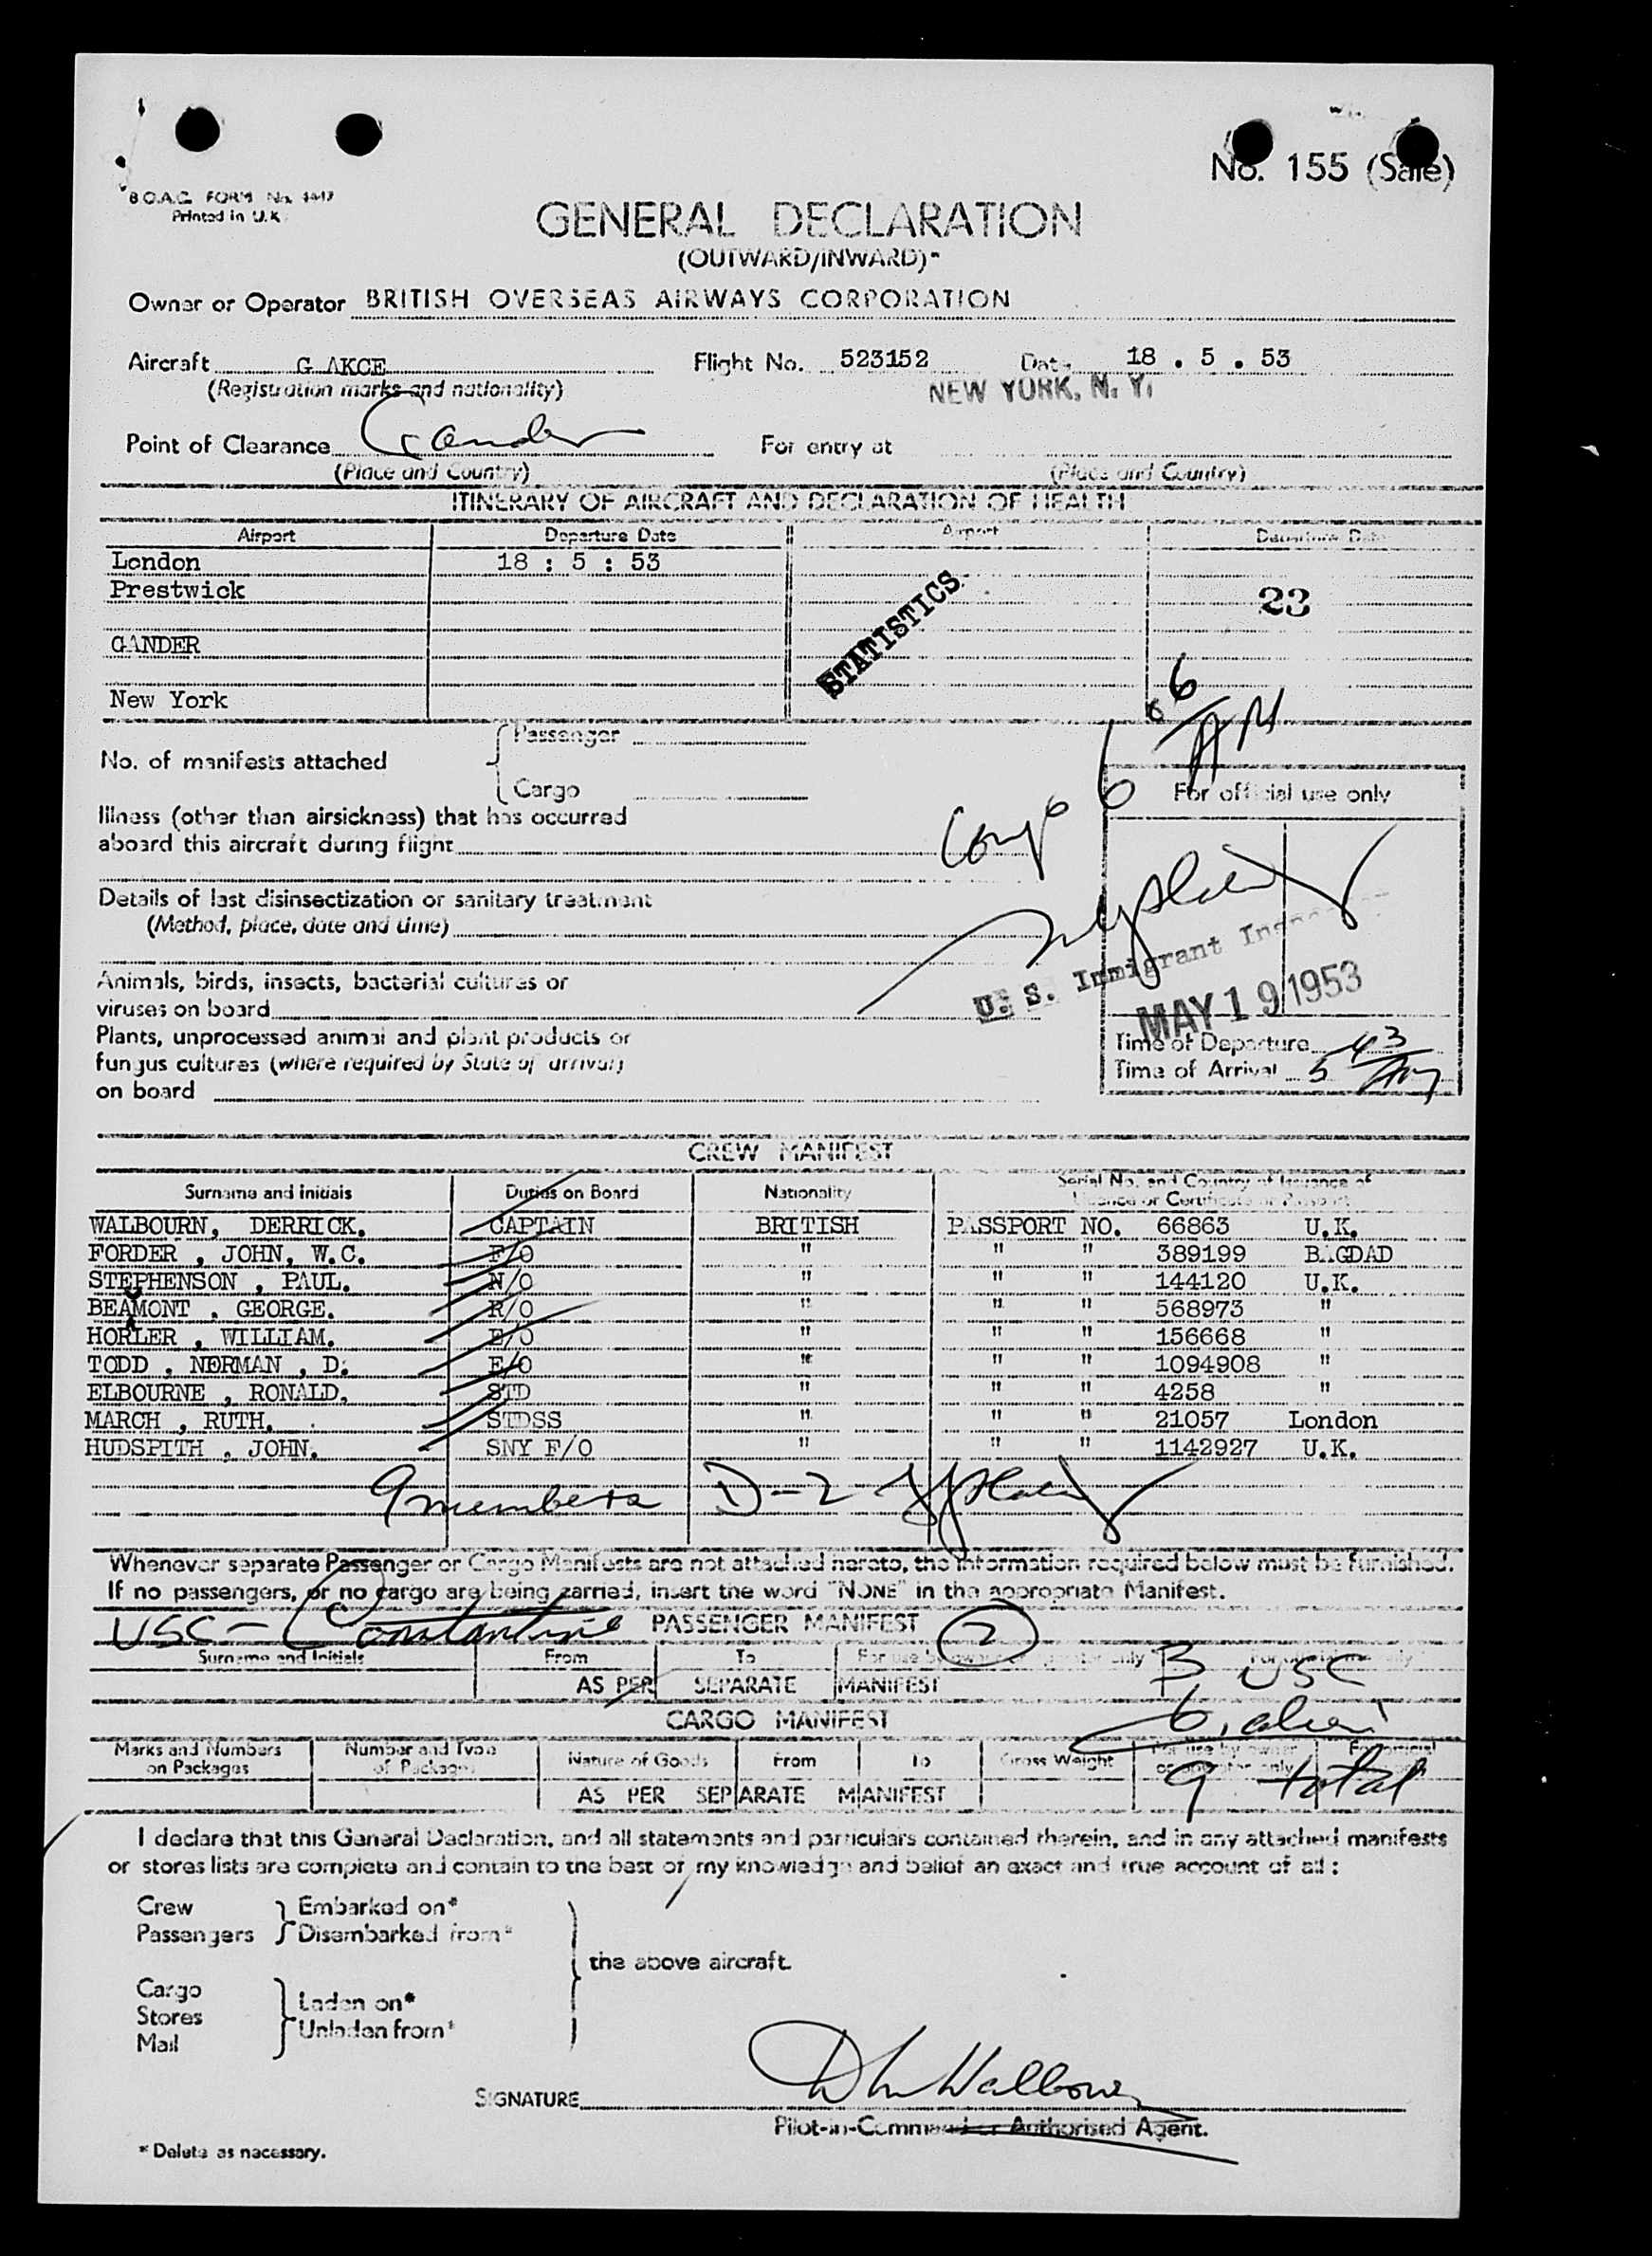 No. 155 (Sale)
B.O.A.C. FORM No.
Printed in U.K.
GENERAL DECLARATION
(OUTWARD/INWARD)*
Owner or Operator BRITISH OVERSEAS AIRWAYS CORPORATION
Aircraft G AKCE Flight No. 523152 Date 18 . 5 . 53
(Registration marks and nationality) NEW YORK, N. Y.
Point of Clearance Gander For entry at
(Place and Country) (Place and Country)
ITINERARY OF AIRCRAFT AND DECLARATION OF HEALTH
Airport Departure Date Airport Departure Date
London 18 : 5 : 53
Prestwick 23
STATISTICS
GANDER
6
New York
6 AM
No. of manifests attached { Passenger
Cargo
For official use only
Illness (other than airsickness) that has occurred
aboard this aircraft during flight
Details of last disinsectization or sanitary treatment
(Method, place, date and time)
U. S. Immigrant Inspector
Animals, birds, insects, bacterial cultures or
viruses on board
MAY 19 1953
Plants, unprocessed animal and plant products or
fungus cultures (where required by State of arrival)
on board
Time of Departure
Time of Arrival 5 43 AM
CREW MANIFEST
Surname and initials Duties on Board Nationality Serial No. and Country of Issuance of
Licence or Certificate or Passport
WALBOURN, DERRICK. CAPTAIN BRITISH PASSPORT NO. 66863 U.K.
FORDER , JOHN, W.C. F/O " " " 389199 BAGDAD
STEPHENSON , PAUL. N/O " " " 144120 U.K.
BEAMONT , GEORGE. R/O " " " 568973 "
HORLER , WILLIAM. E/O " " " 156668 "
TODD , NORMAN , D. E/O " " " 1094908 "
ELBOURNE , RONALD. STD " " " 4258 "
MARCH , RUTH. STDSS " " " 21057 London
HUDSPITH , JOHN. SNY F/O " " " 1142927 U.K.
9 members D-2
Whenever separate Passenger or Cargo Manifests are not attached hereto, the information required below must be furnished.
If no passengers, or no cargo are being carried, insert the word "NONE" in the appropriate Manifest.
USC - Constantine PASSENGER MANIFEST 2
Surname and Initials From To For use by owner or operator only For official use only
3 USC
AS PER SEPARATE MANIFEST
CARGO MANIFEST
6 alien
Marks and Numbers on Packages Number and Type of Packages Nature of Goods From To Gross Weight For use by owner or operator only For official
AS PER SEPARATE MANIFEST
9 total
I declare that this General Declaration, and all statements and particulars contained therein, and in any attached manifests
or stores lists are complete and contain to the best of my knowledge and belief an exact and true account of all :
Crew } Embarked on*
Passengers } Disembarked from*
the above aircraft.
Cargo
Stores } Laden on*
Mail } Unladen from*
SIGNATURE
Pilot-in-Command or Authorised Agent.
* Delete as necessary.